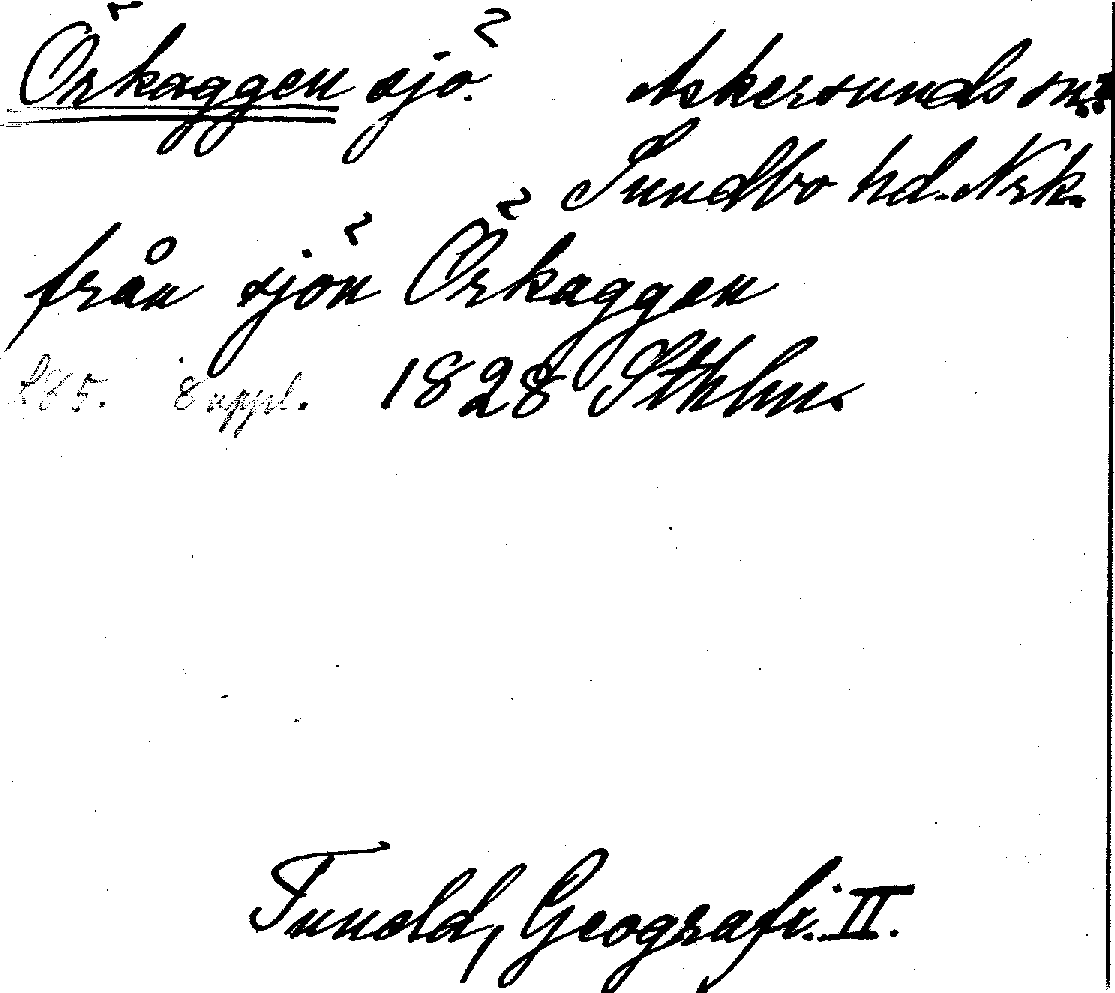 Örkaggen sjö. Askersunds sn.
Sundbo hd. Nrk.
från sjön Örkaggen
S 85. 8 uppl. 1828 Sthlm.
Tuneld, Geografi. II.